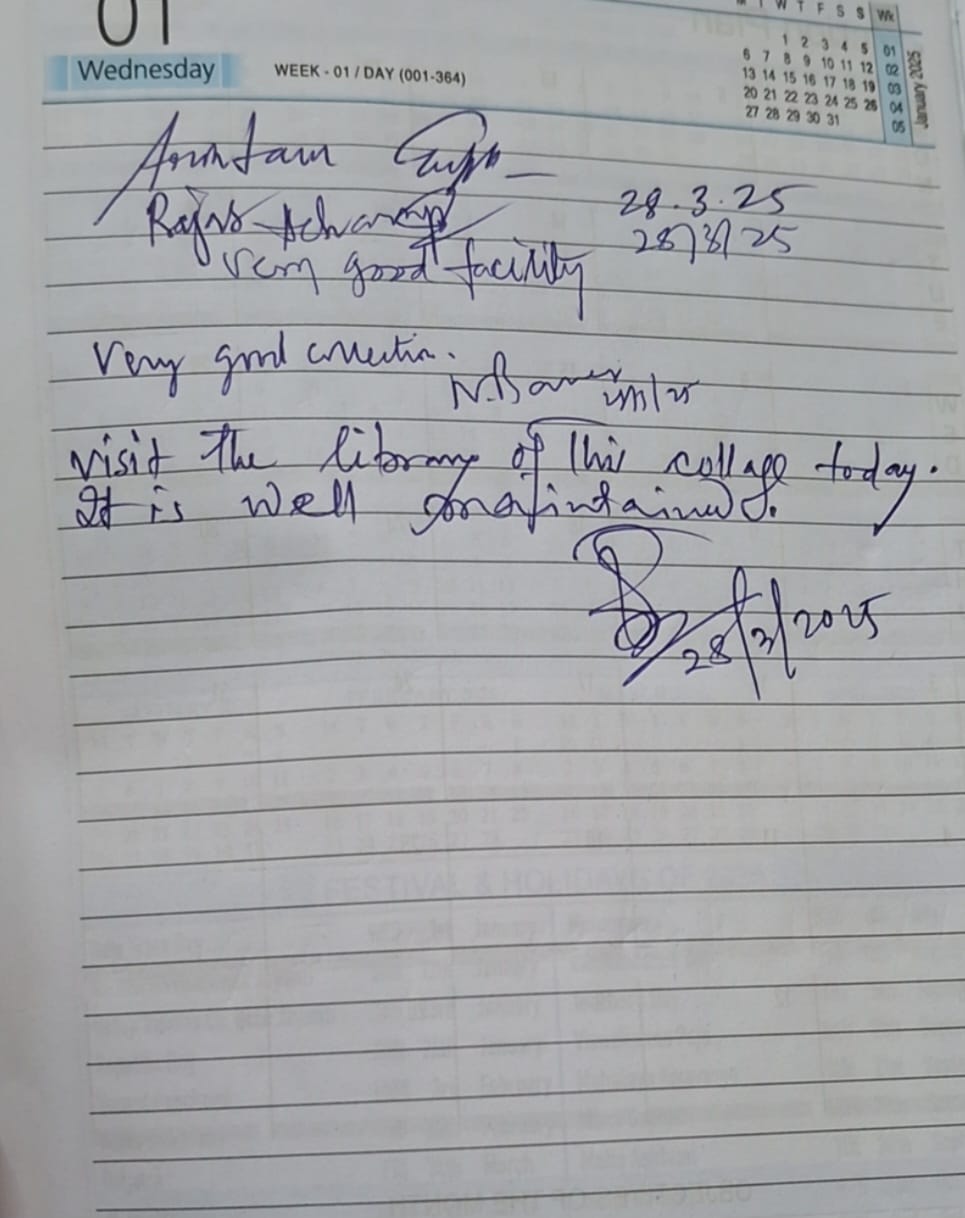 01
M T W T F S S Wk
Wednesday WEEK - 01 / DAY (001-364)
1 2 3 4 5 01
6 7 8 9 10 11 12 02
13 14 15 16 17 18 19 03
20 21 22 23 24 25 26 04
27 28 29 30 31 05
January 2025
28.3.25
28/3/25
very good facility
Very good collection.
visit the library of this collage today.
It is well maintained.
28/3/2025